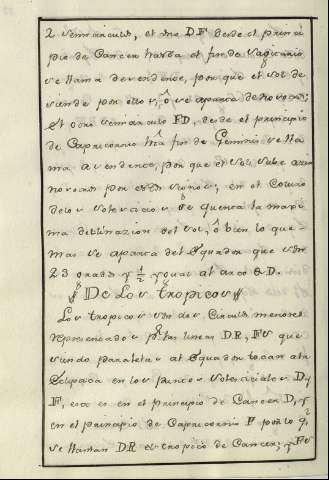 2 semicirculos, el uno DF desde el princi
pio de Cancer hasta el fin de Sagitario
se llama descendente, por que el sol de
ciende por ellos, ô se aparta de nosotros;
El otro semicirculo FD, desde el principio
de Capricornio hta fin de Geminis se lla
ma ascendente, por que el Sol sube azia
nosotros por estos signos; en el Coluro
delos solsticios se quenta la maxi
ma declinazion del sol, ô bien lo que
mas se aparta del Equador que son
23 grados y 1/2 y igual al arco QD.
De Los tropicos
Los tropicos son dos Circulos menores
representados pr las lineas DR, FS que
siendo paralelas al Equador tocan ala
Ecliptica en los puntos solsticiales D y
F, esto es en el principio de Cancer D, y
en el principio de Capricornio F por lo q.
se llaman DR el tropico de Cancer; y FS